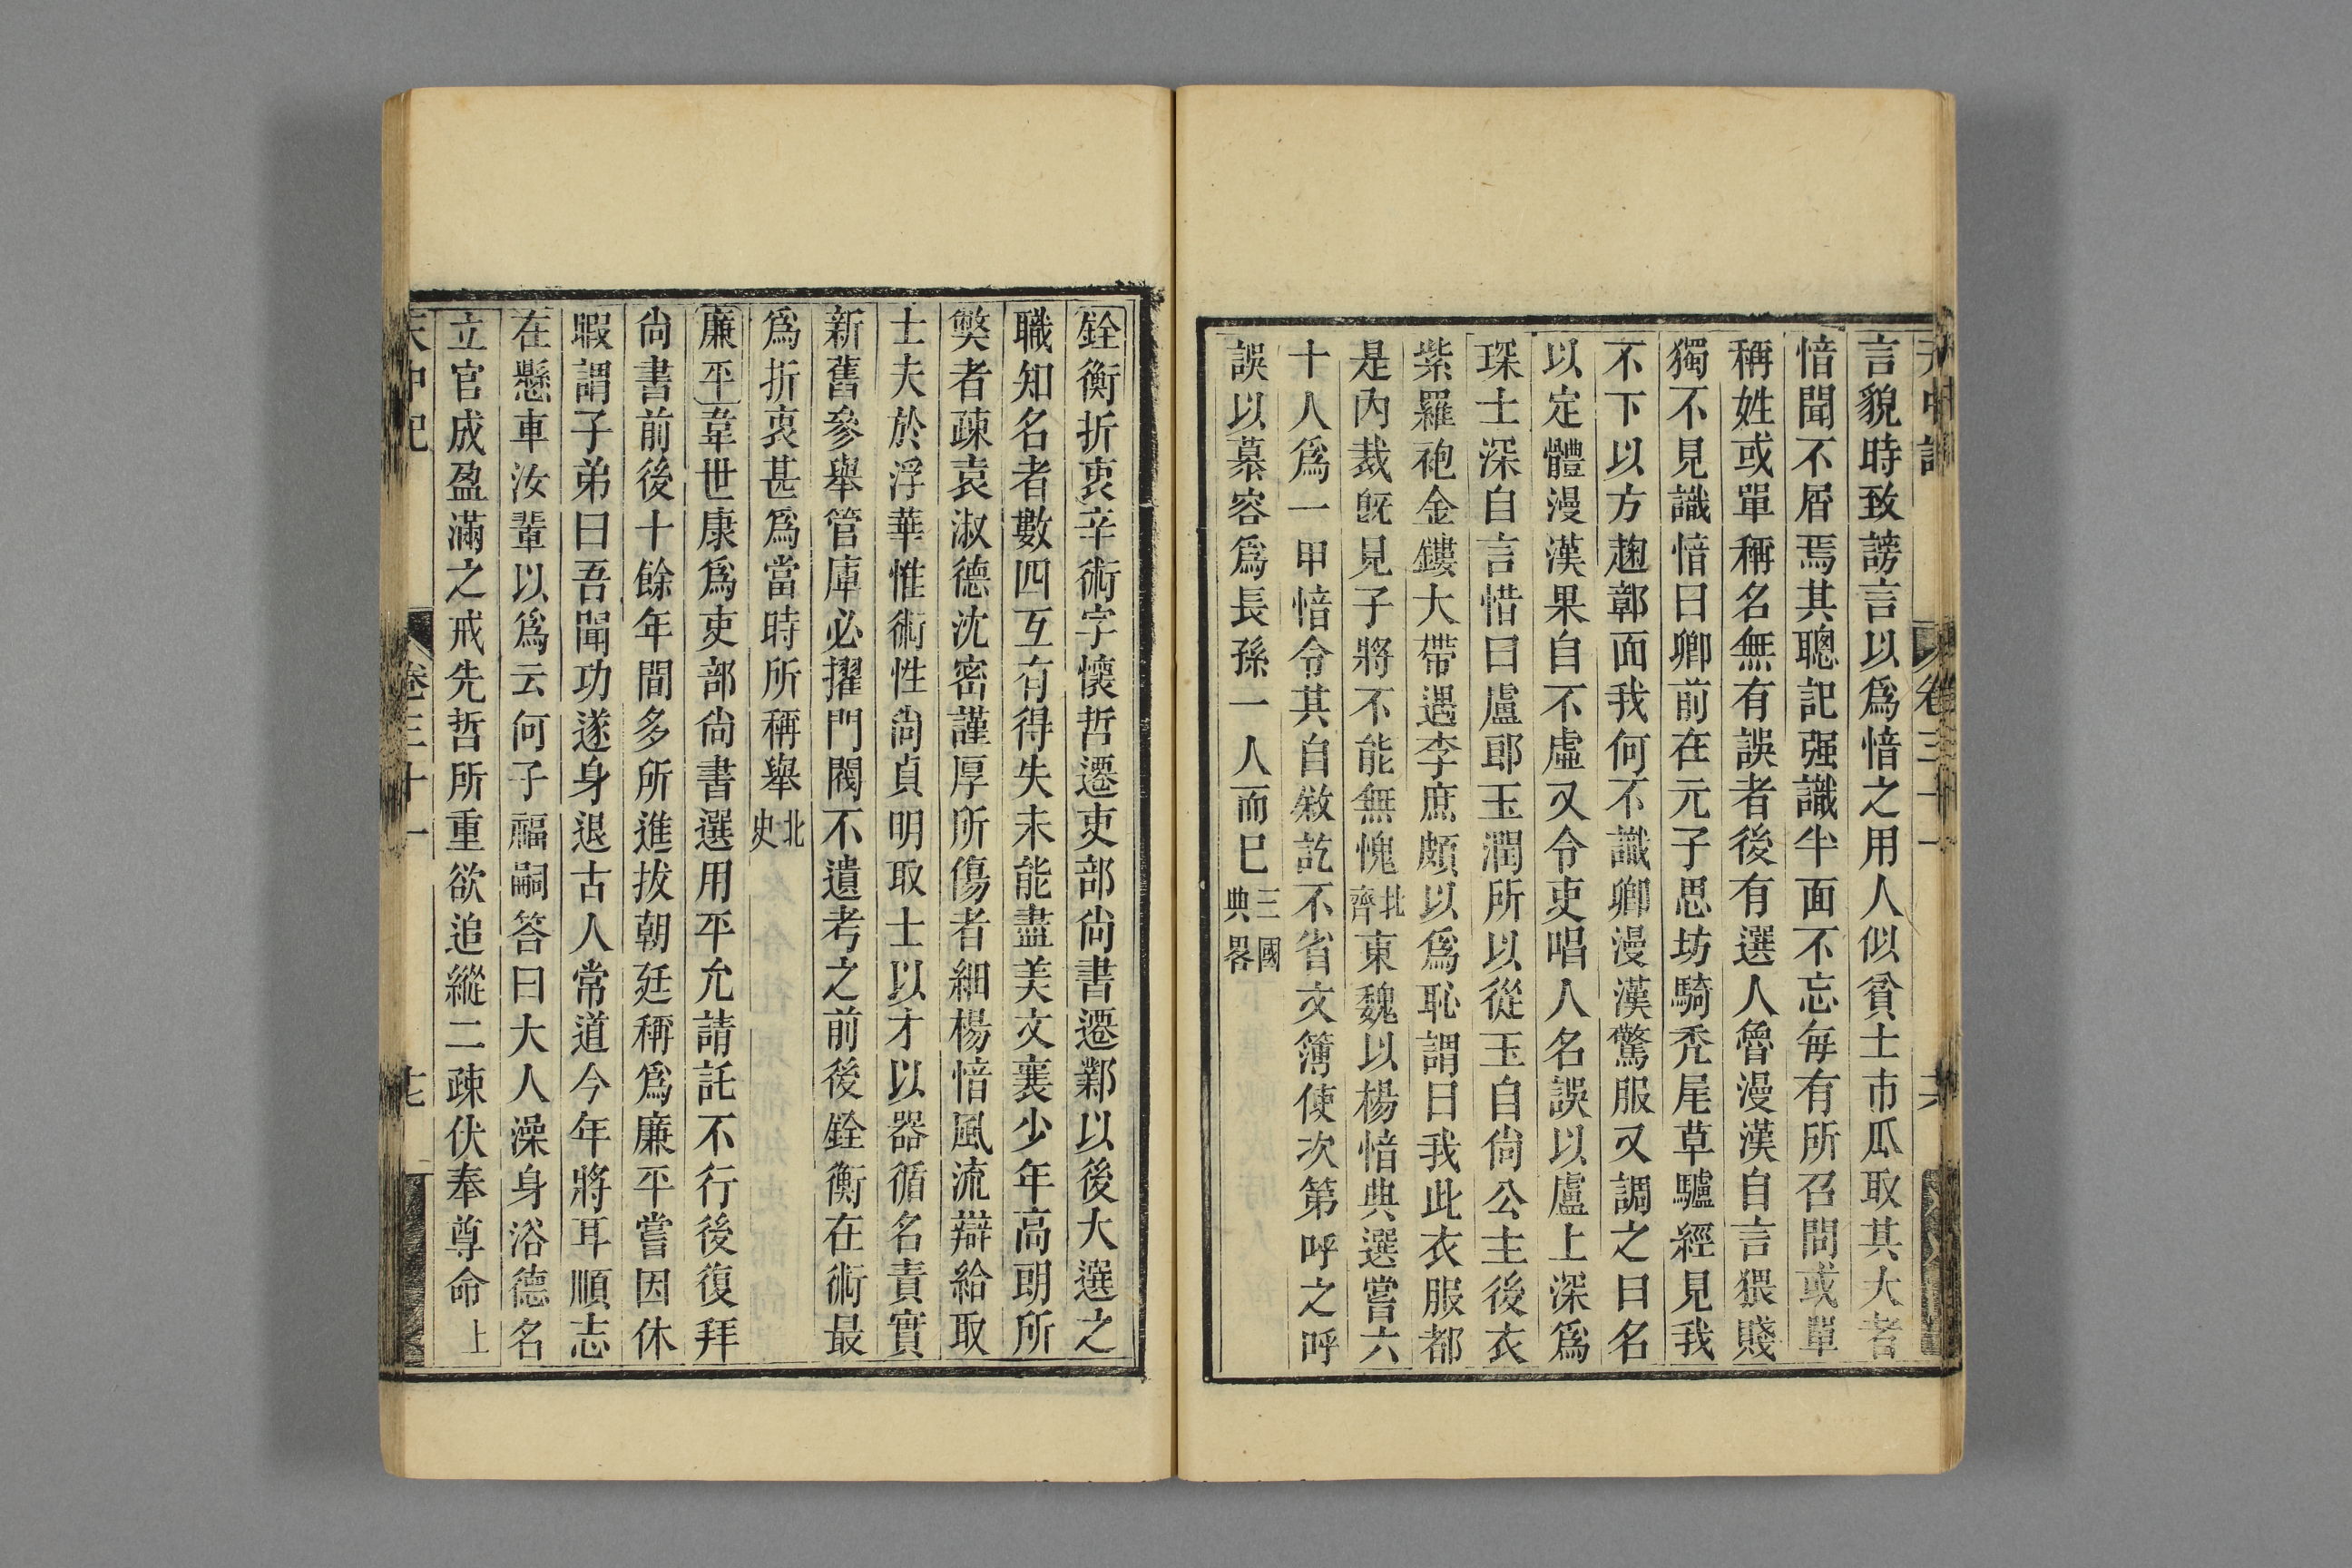 言貌時致謗言以爲愔之用人似貧士市瓜取其大者
愔聞不屑焉其聰記强識半面不忘每有所召問或單
稱姓或單稱名無有誤者後有選人魯漫漢自言猥賤
獨不見識愔曰卿前在元子思坊騎秃尾草驢經見我
不下以方麹鄣面我何不識卿漫漢驚服又調之曰名
以定體漫漢果自不虛又令吏唱人名誤以盧士深爲
琛士深自言愔曰盧郎玉潤所以從玉自尙公主後衣
紫羅袍金鏤大帶遇李庶頗以爲恥謂曰我此衣服都
是內裁旣見子將不能無愧北齊東魏以楊愔典選嘗六
十人爲一甲愔令其自敘訖不省文簿使次第呼之呼
誤以慕容爲長孫一人而巳三國典畧
銓衡折衷辛術字懷哲遷吏部尙書遷鄴以後大選之
職知名者數四互有得失未能盡美文襄少年高朗所
弊者疎袁淑德沈密謹厚所傷者細楊愔風流辯給取
士夫於浮華惟術性尙貞明取士以才以器循名責實
新舊參舉管庫必擢門閥不遺考之前後銓衡在術最
爲折衷甚爲當時所稱舉北史
廉平韋世康爲吏部尙書選用平允請託不行後復拜
尙書前後十餘年間多所進拔朝廷稱爲廉平嘗因休
暇謂子弟曰吾聞功遂身退古人常道今年將耳順志
在懸車汝輩以爲云何子福嗣答曰大人澡身浴德名
立官成盈滿之戒先哲所重欲追縱二疎伏奉尊命上
天中記 卷三十一